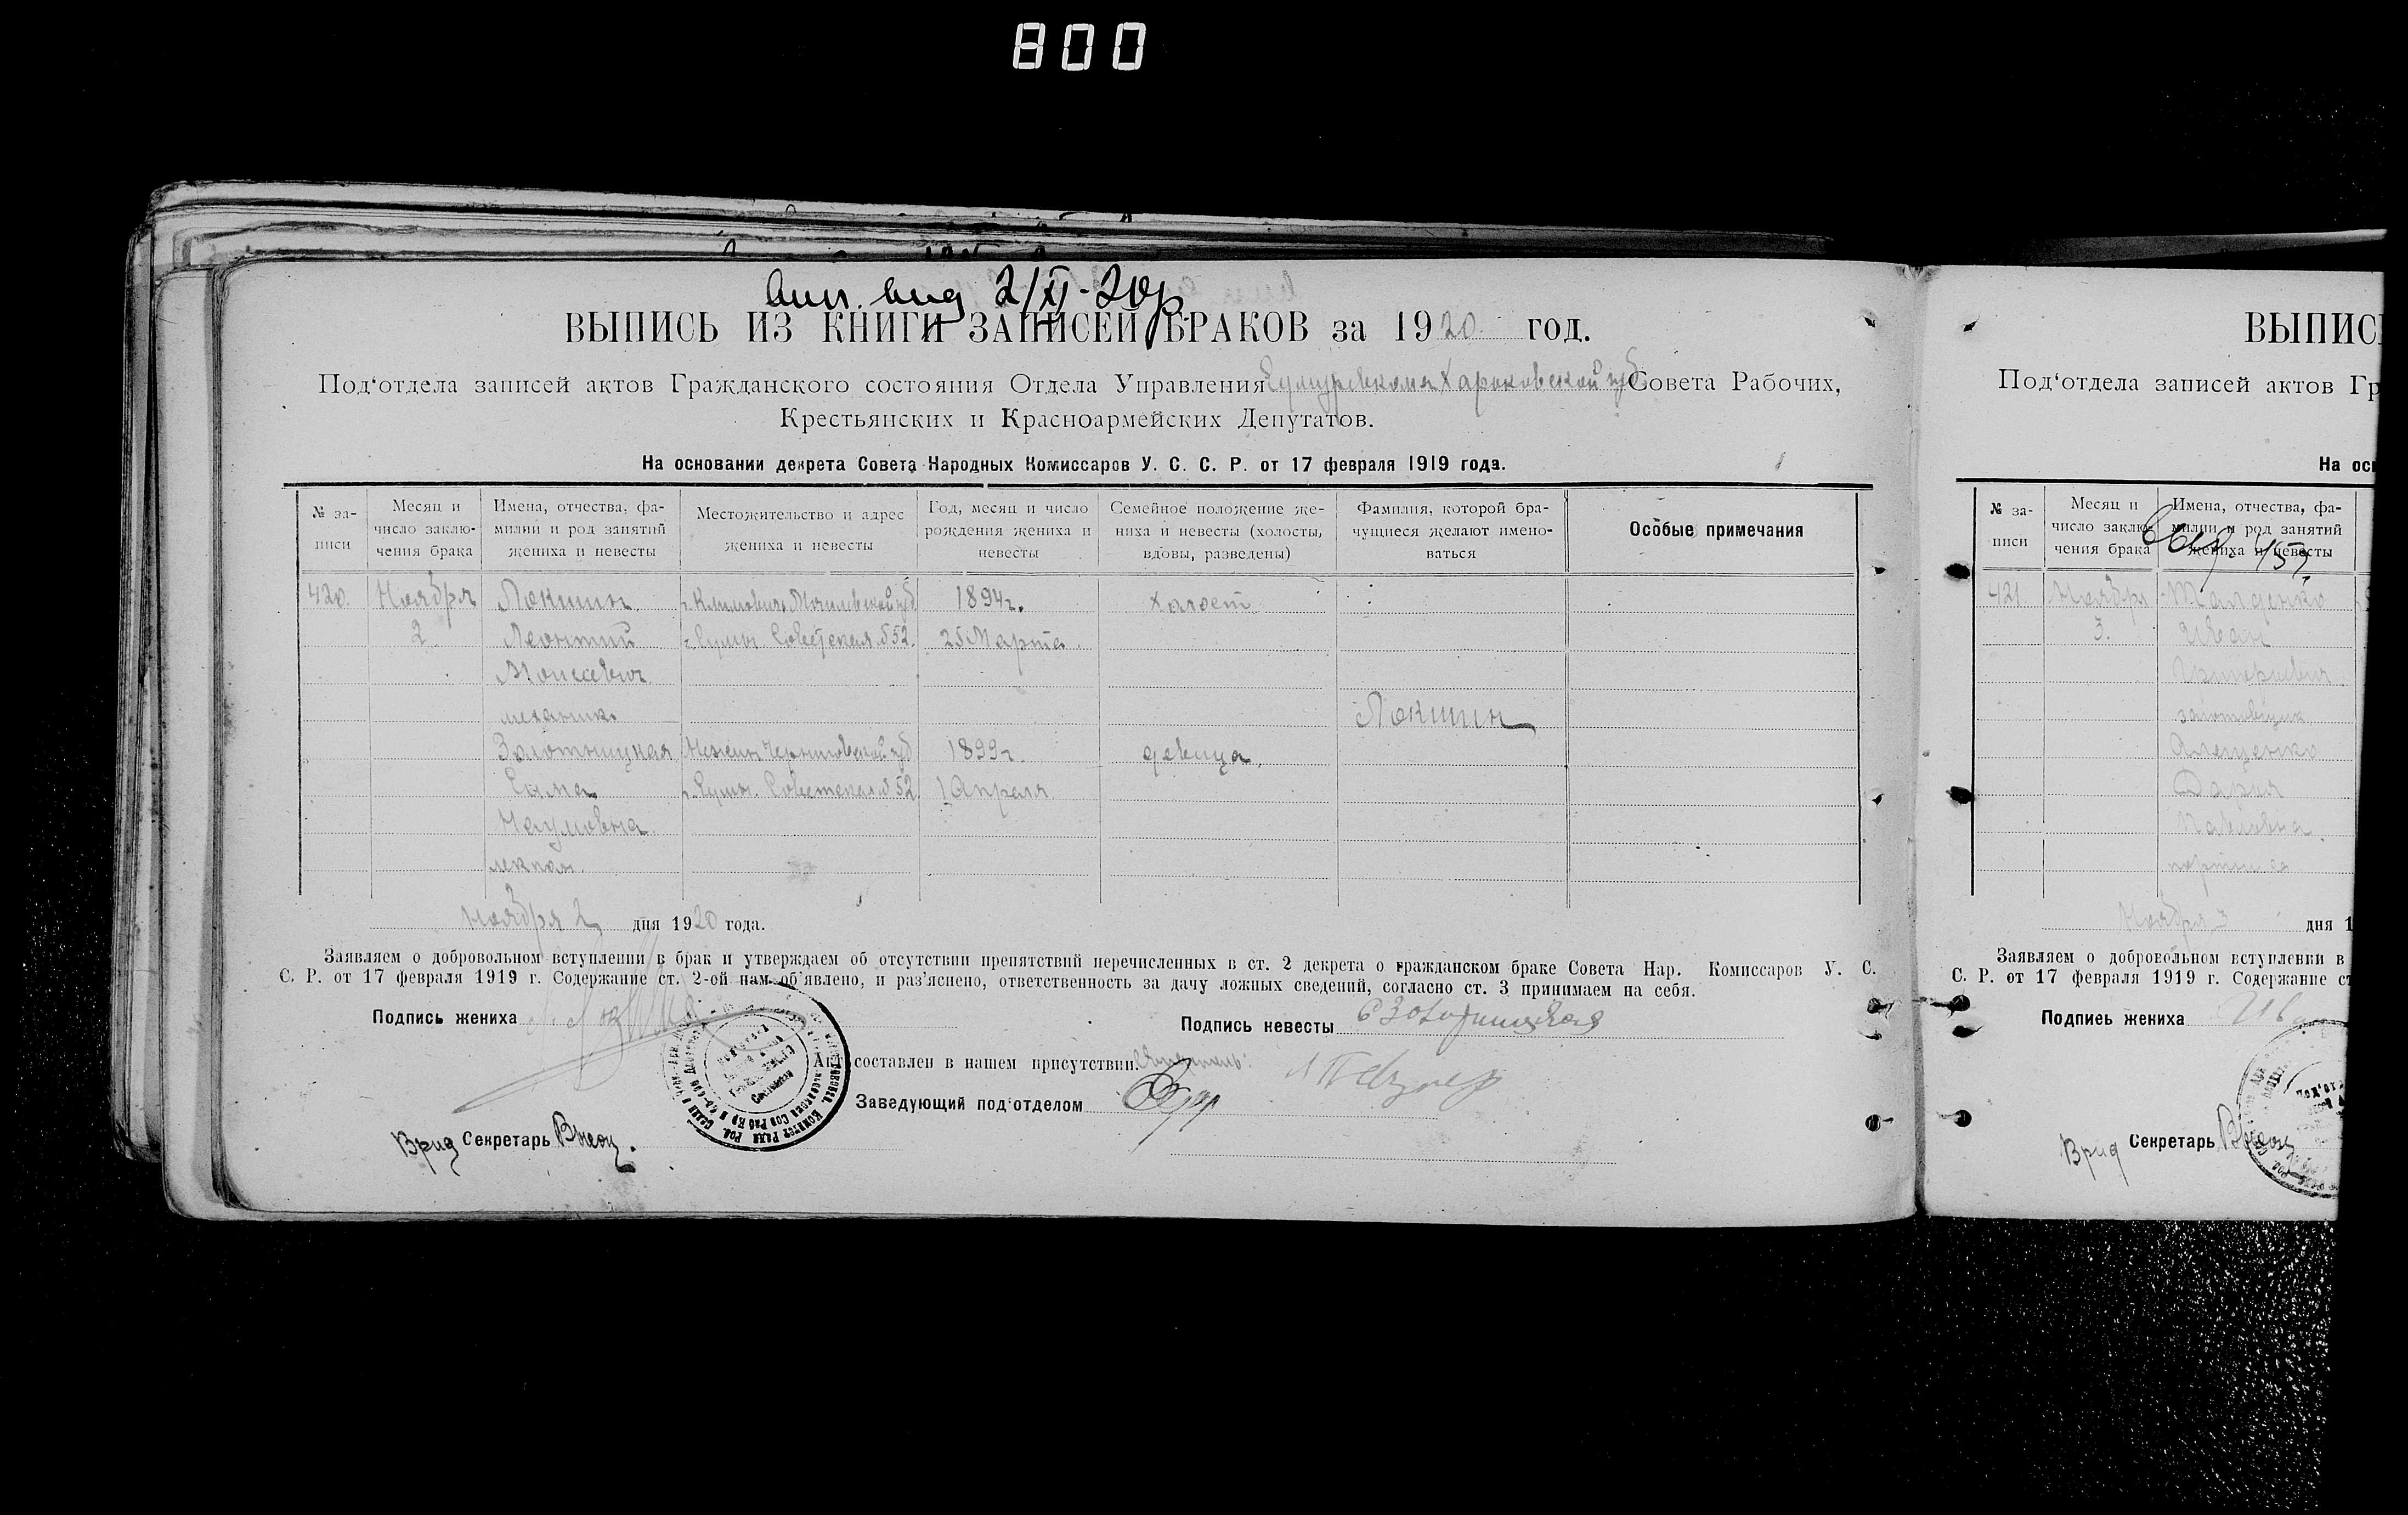 800
2/XI-20р.
ВЫПИСЬ ИЗ КНИГИ ЗАПИСЕЙ БРАКОВ за 1920 год.
Под‘отдела записей актов Гражданского состояния Отдела Управления Харьковской губ Совета Рабочих,
Крестьянских и Красноармейских Депутатов.
На основании декрета Совета Народных Комиссаров У. С. С. Р. от 17 февраля 1919 года.
№ за-
писи
Месяц и
число заклю-
чения брака
Имена, отчества, фа-
милии и род занятий
жениха и невесты
Местожительство и адрес
жениха и невесты
Год, месяц и число
рождения жениха и
невесты
Семейное положение же-
ниха и невесты (холосты,
вдовы, разведены)
Фамилия, которой бра-
чущиеся желают имено-
ваться
Особые примечания
420. Ноября Локшин г. Климовичи Могилевской губ 1894г. холост
2 Леонтий г. Сумы Советская №52. 25 Марта.
Моисеевич
механик Локшин
Золотницкая Нежин Черниговской губ 1899г. девица
г. Сумы. Советская №52 1 Апреля
Наумовна
Ноября 2 дня 1920 года.
Заявляем о добровольном вступлении в брак и утверждаем об отсутствии препятствий перечисленных в ст. 2 декрета о гражданском браке Совета Нар. Комиссаров У. С.
С. Р. от 17 февраля 1919 г. Содержание ст. 2-ой нам об’явлено, и раз’яснено, ответственность за дачу ложных сведений, согласно ст. 3 принимаем на себя.
Подпись жениха
Подпись невесты
Акт составлен в нашем присутствии.
Заведующий под‘отделом
Врид Секретарь
ВЫПИС
Под‘отдела записей актов Гр
На осн
№ за-
писи
Месяц и
число заклю-
чения брака
Имена, отчества, фа-
милии и род занятий
жениха и невесты
421 Ноября
3. Иван
Григориевич
Дария
Павловна
Ноября 3 дня 1
Заявляем о добровольном вступлении в
С. Р. от 17 февраля 1919 г. Содержание ст
Подпись жениха Ив
Врид Секретарь